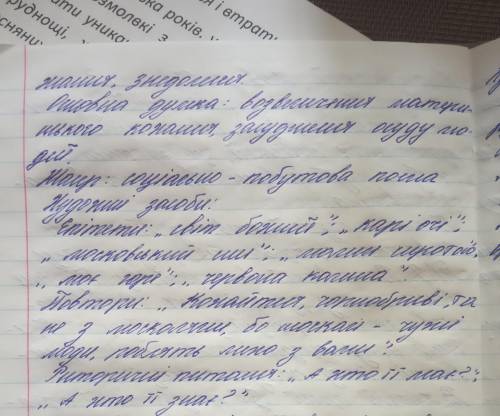 рудноці,
ати уника
розмолвкі з
ька років,
я і втрат
знання, знедолення.
Основна думка: возвеличення матери-
нського кохання, засудження осуду лю-
дій.
Жанр: соціально - побутова поема
Художні засоби:
Епітети: „світ божий"; „карі очі";
„московський ;
„моє горе"; „червона калина"
Повтори: „Кохайтеся, чорнобриві, та
не з москалями, бо москалі - чужі
люди, роблять лихо з вами".
Риторичні питання: „А хто її має?";
„А хто її знає?"